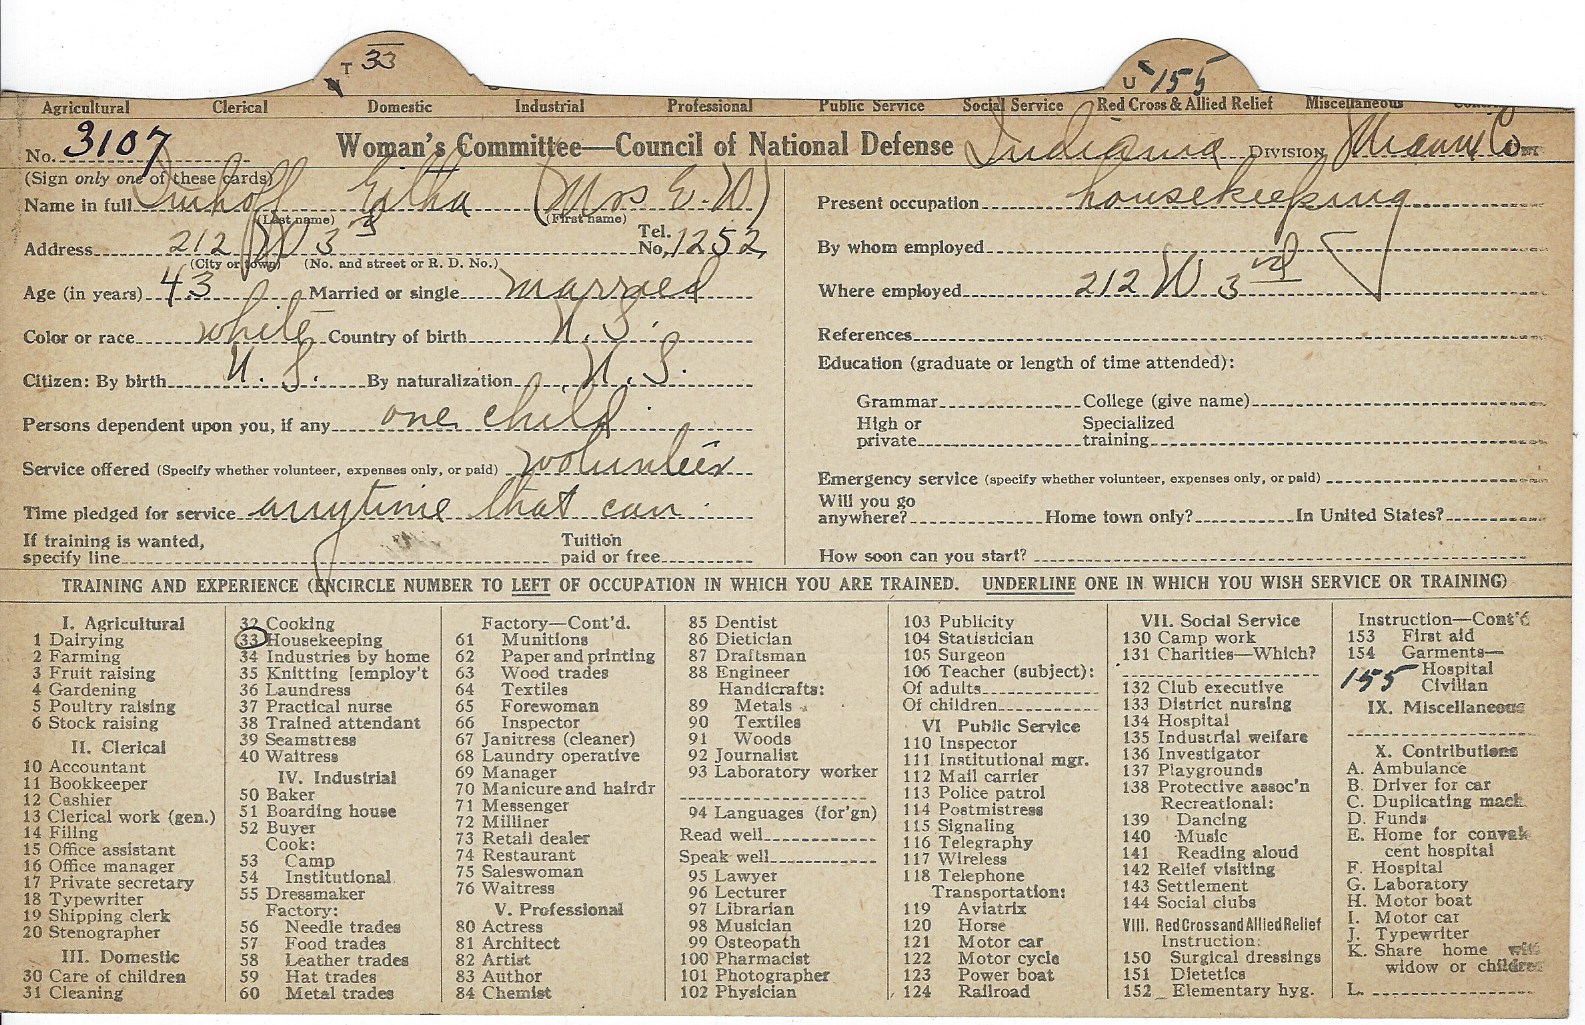 T 33
U 155
Agricultural Clerical Domestic Industrial Professional Public Service Social Service Red Cross & Allied Relief Miscellaneous
No. 3107 Woman's Committee—Council of National Defense Indiana DIVISION Miami Co
(Sign only one of these cards)
Name in full Imhoff Eitha (Mrs E. W)
(Last name) (First name)
Address 212 W 3rd Tel. No. 1252
(City or town) (No. and street or R. D. No.)
Age (in years) 43 Married or single married
Color or race white Country of birth U. S.
Citizen: By birth U. S. By naturalization U. S.
Persons dependent upon you, if any one child
Service offered (Specify whether volunteer, expenses only, or paid) volunteer
Time pledged for service anytime that can
If training is wanted, specify line Tuition paid or free
Present occupation housekeeping
By whom employed
Where employed 212 W 3rd
References
Education (graduate or length of time attended):
Grammar College (give name)
High or private Specialized training
Emergency service (specify whether volunteer, expenses only, or paid)
Will you go anywhere? Home town only? In United States?
How soon can you start?
TRAINING AND EXPERIENCE (ENCIRCLE NUMBER TO LEFT OF OCCUPATION IN WHICH YOU ARE TRAINED. UNDERLINE ONE IN WHICH YOU WISH SERVICE OR TRAINING)
I. Agricultural
1 Dairying
2 Farming
3 Fruit raising
4 Gardening
5 Poultry raising
6 Stock raising
II. Clerical
10 Accountant
11 Bookkeeper
12 Cashier
13 Clerical work (gen.)
14 Filing
15 Office assistant
16 Office manager
17 Private secretary
18 Typewriter
19 Shipping clerk
20 Stenographer
III. Domestic
30 Care of children
31 Cleaning
32 Cooking
33 Housekeeping
34 Industries by home
35 Knitting [employ't
36 Laundress
37 Practical nurse
38 Trained attendant
39 Seamstress
40 Waitress
IV. Industrial
50 Baker
51 Boarding house
52 Buyer
Cook:
53 Camp
54 Institutional
55 Dressmaker
Factory:
56 Needle trades
57 Food trades
58 Leather trades
59 Hat trades
60 Metal trades
Factory—Cont'd.
61 Munitions
62 Paper and printing
63 Wood trades
64 Textiles
65 Forewoman
66 Inspector
67 Janitress (cleaner)
68 Laundry operative
69 Manager
70 Manicure and hairdr
71 Messenger
72 Milliner
73 Retail dealer
74 Restaurant
75 Saleswoman
76 Waitress
V. Professional
80 Actress
81 Architect
82 Artist
83 Author
84 Chemist
85 Dentist
86 Dietician
87 Draftsman
88 Engineer
Handicrafts:
89 Metals
90 Textiles
91 Woods
92 Journalist
93 Laboratory worker
94 Languages (for'gn)
Read well
Speak well
95 Lawyer
96 Lecturer
97 Librarian
98 Musician
99 Osteopath
100 Pharmacist
101 Photographer
102 Physician
103 Publicity
104 Statistician
105 Surgeon
106 Teacher (subject):
Of adults
Of children
VI Public Service
110 Inspector
111 Institutional mgr.
112 Mail carrier
113 Police patrol
114 Postmistress
115 Signaling
116 Telegraphy
117 Wireless
118 Telephone
Transportation:
119 Aviatrix
120 Horse
121 Motor car
122 Motor cycle
123 Power boat
124 Railroad
VII. Social Service
130 Camp work
131 Charities—Which?
132 Club executive
133 District nursing
134 Hospital
135 Industrial welfare
136 Investigator
137 Playgrounds
138 Protective assoc'n
Recreational:
139 Dancing
140 Music
141 Reading aloud
142 Relief visiting
143 Settlement
144 Social clubs
VIII. Red Cross and Allied Relief
Instruction:
150 Surgical dressings
151 Dietetics
152 Elementary hyg.
Instruction—Cont'd
153 First aid
154 Garments—
155 Hospital
Civilian
IX. Miscellaneous
X. Contributions
A. Ambulance
B. Driver for car
C. Duplicating mach.
D. Funds
E. Home for convales-
cent hospital
F. Hospital
G. Laboratory
H. Motor boat
I. Motor car
J. Typewriter
K. Share home with
widow or children
L.